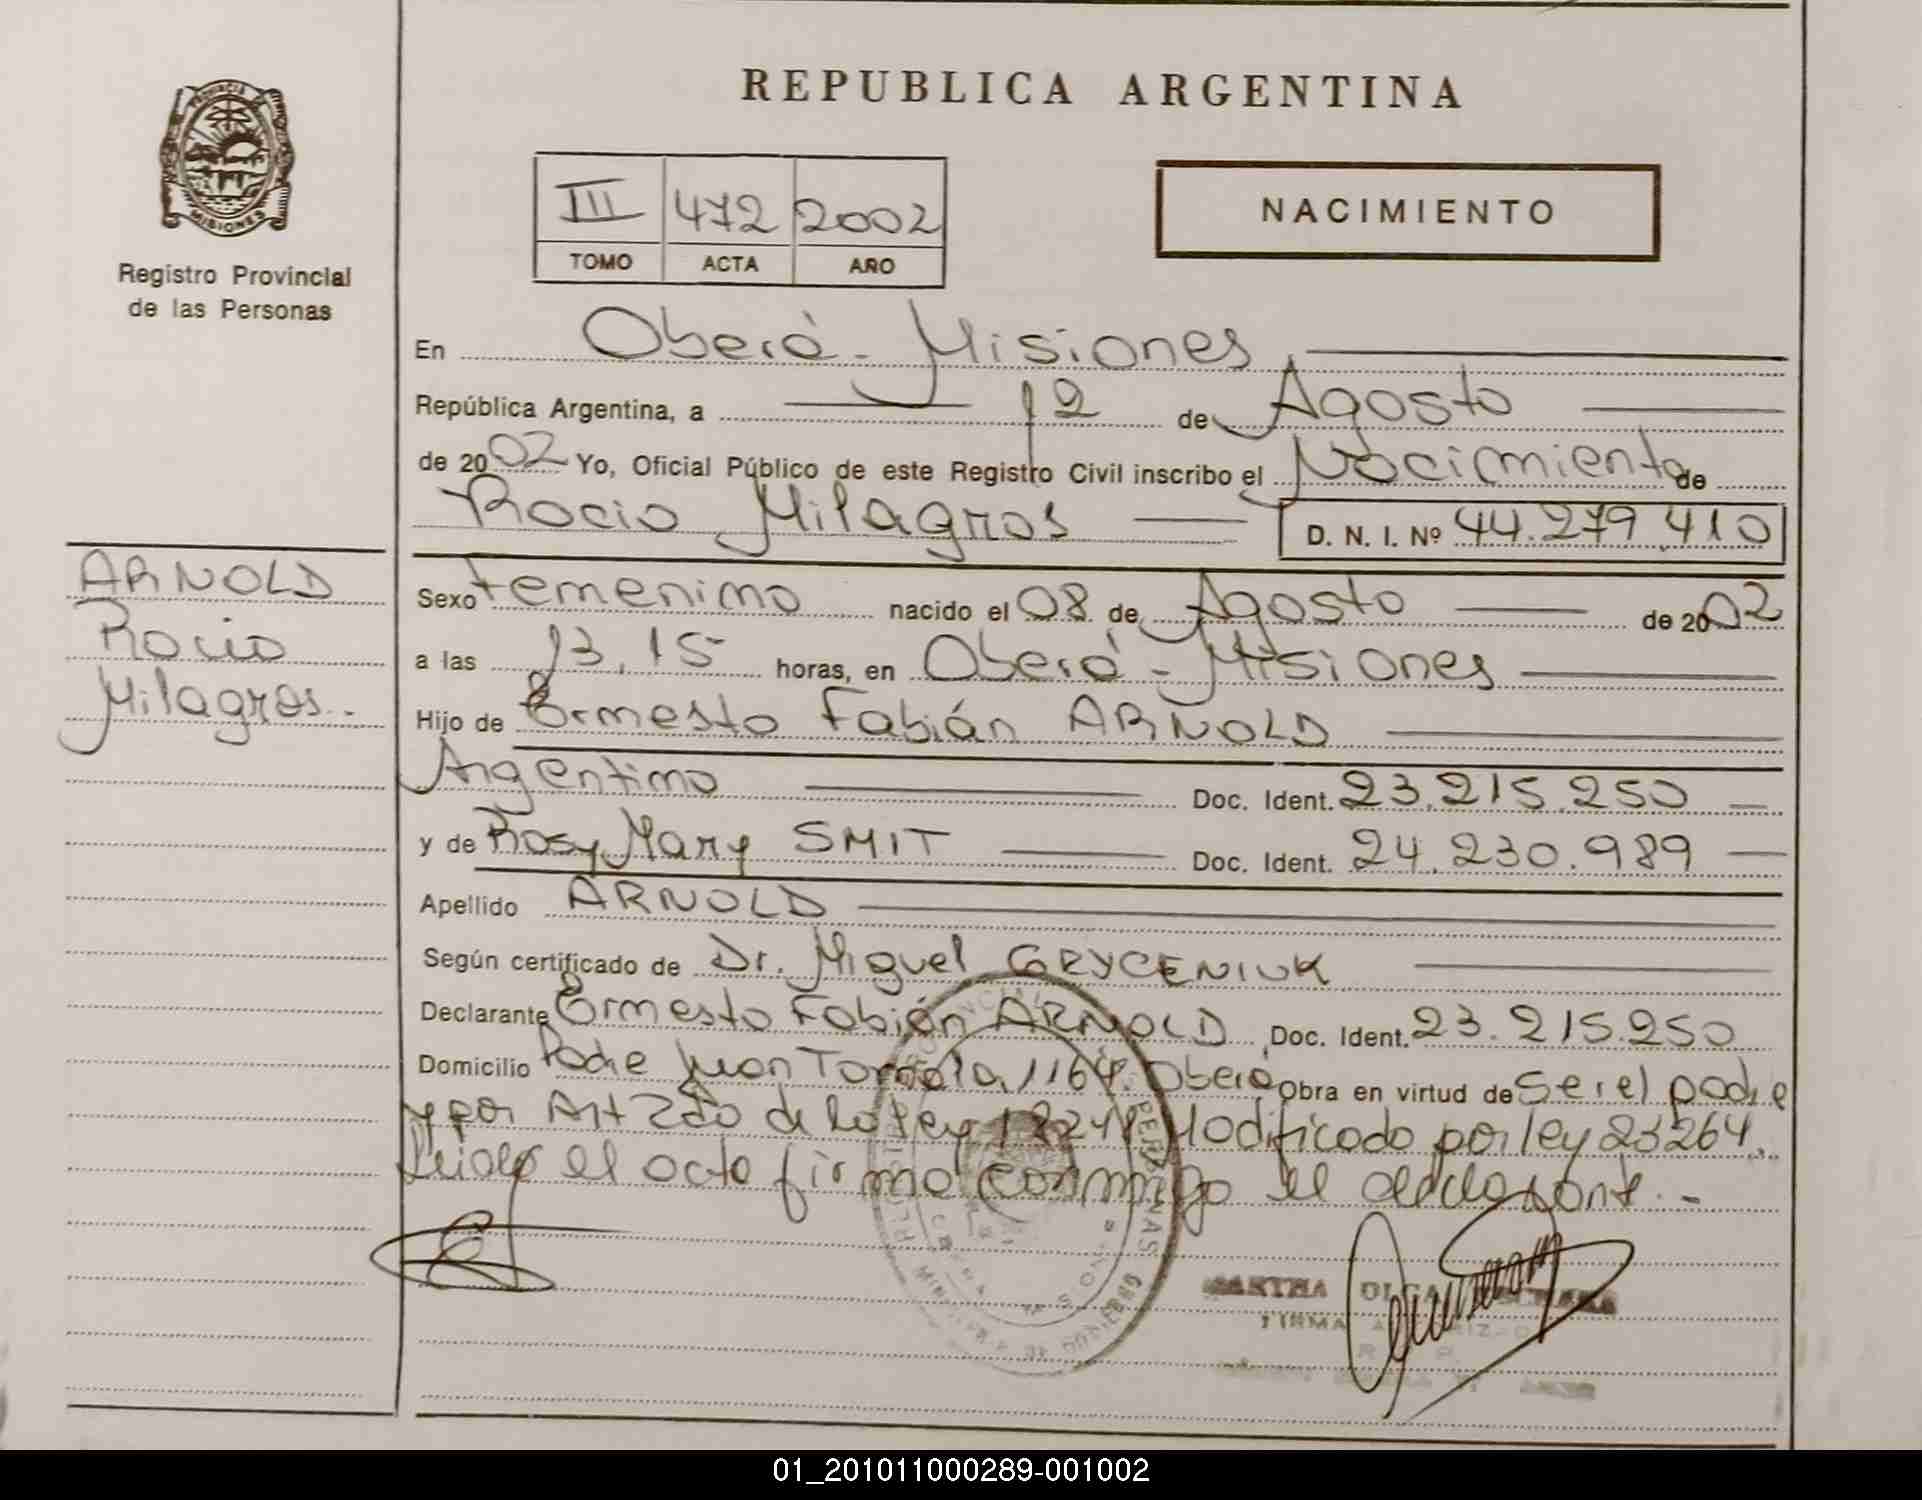 REPUBLICA ARGENTINA
PROVINCIA DE
MISIONES
Registro Provincial
de las Personas
III 472 2002
TOMO ACTA AÑO
NACIMIENTO
En Oberá - Misiones
República Argentina, a 12 de Agosto
de 2002 Yo, Oficial Público de este Registro Civil inscribo el Nacimiento de
Rocio Milagros D. N. I. Nº 44.279.410
ARNOLD
Rocio
Milagros.-
Sexo Femenino nacido el 08 de Agosto de 2002
a las 13,15 horas, en Oberá - Misiones
Hijo de Ernesto Fabián ARNOLD
Argentino Doc. Ident. 23.215.250
y de Rosy Mary SMIT Doc. Ident. 24.230.989
Apellido ARNOLD
Según certificado de Dr. Miguel GRYCENIUK
Declarante Ernesto Fabián ARNOLD Doc. Ident. 23.215.250
Domicilio Padre Juan 1164. Oberá Obra en virtud de Ser el padre
y por Art 2do de la Ley Modificado por ley 23264.
Leida el acta firma conmigo el declarante.-
MARTHA OLGA
FIRMA
01_201011000289-001002